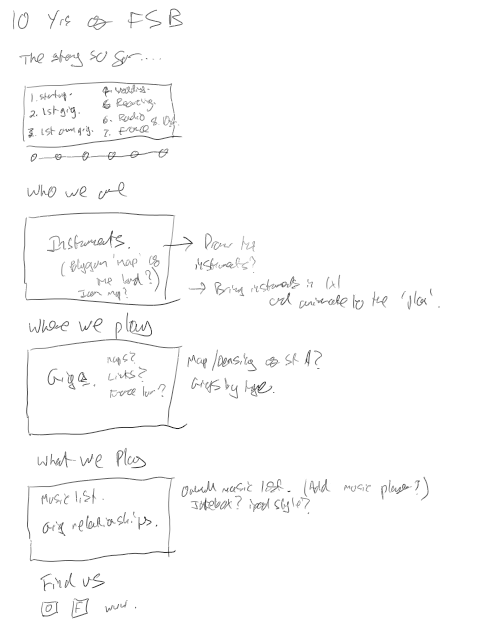 10 Yrs of FSB
The story so far....
1. Startup.
2. 1st gig.
3. 1st own gig.
4. Wedding.
6 Recording.
6. Radio
7. France
8. 10yr.
Who we are
Instruments.
( Polygon 'map' of
the band?)
Icon map?
→ Draw the
instruments?
→ Bring instruments in 1x1
and animate to the 'plot'.
Where we play
Gigs.
maps?
Lists?
France tour?
Map/Density of St A?
Gigs by type.
What we Play
Music list.
Gig relationships.
Overall music list. (Add music player?)
Jukebox? ipod style?
Find us
F www.